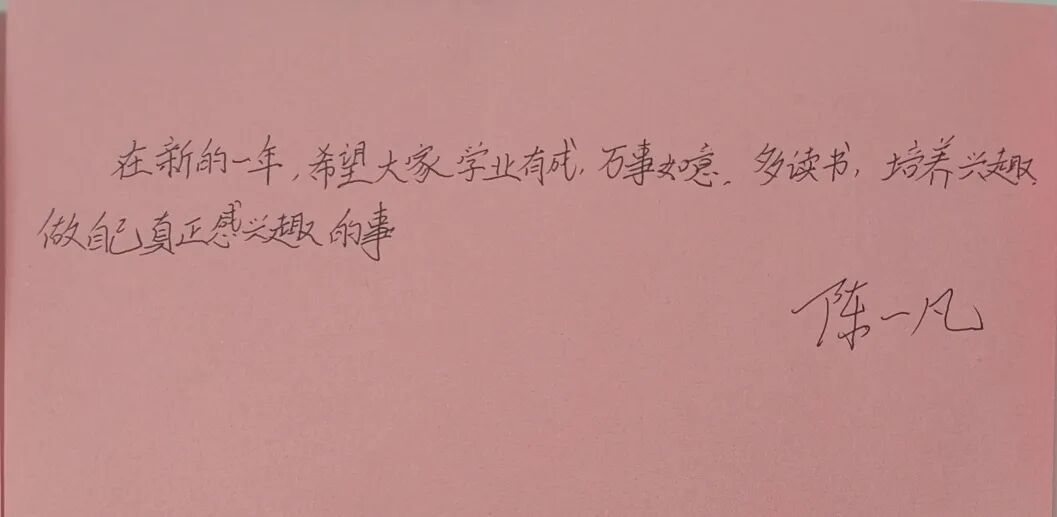 在新的一年,希望大家学业有成,万事如意。多读书,培养兴趣,
做自己真正感兴趣的事
陈一凡